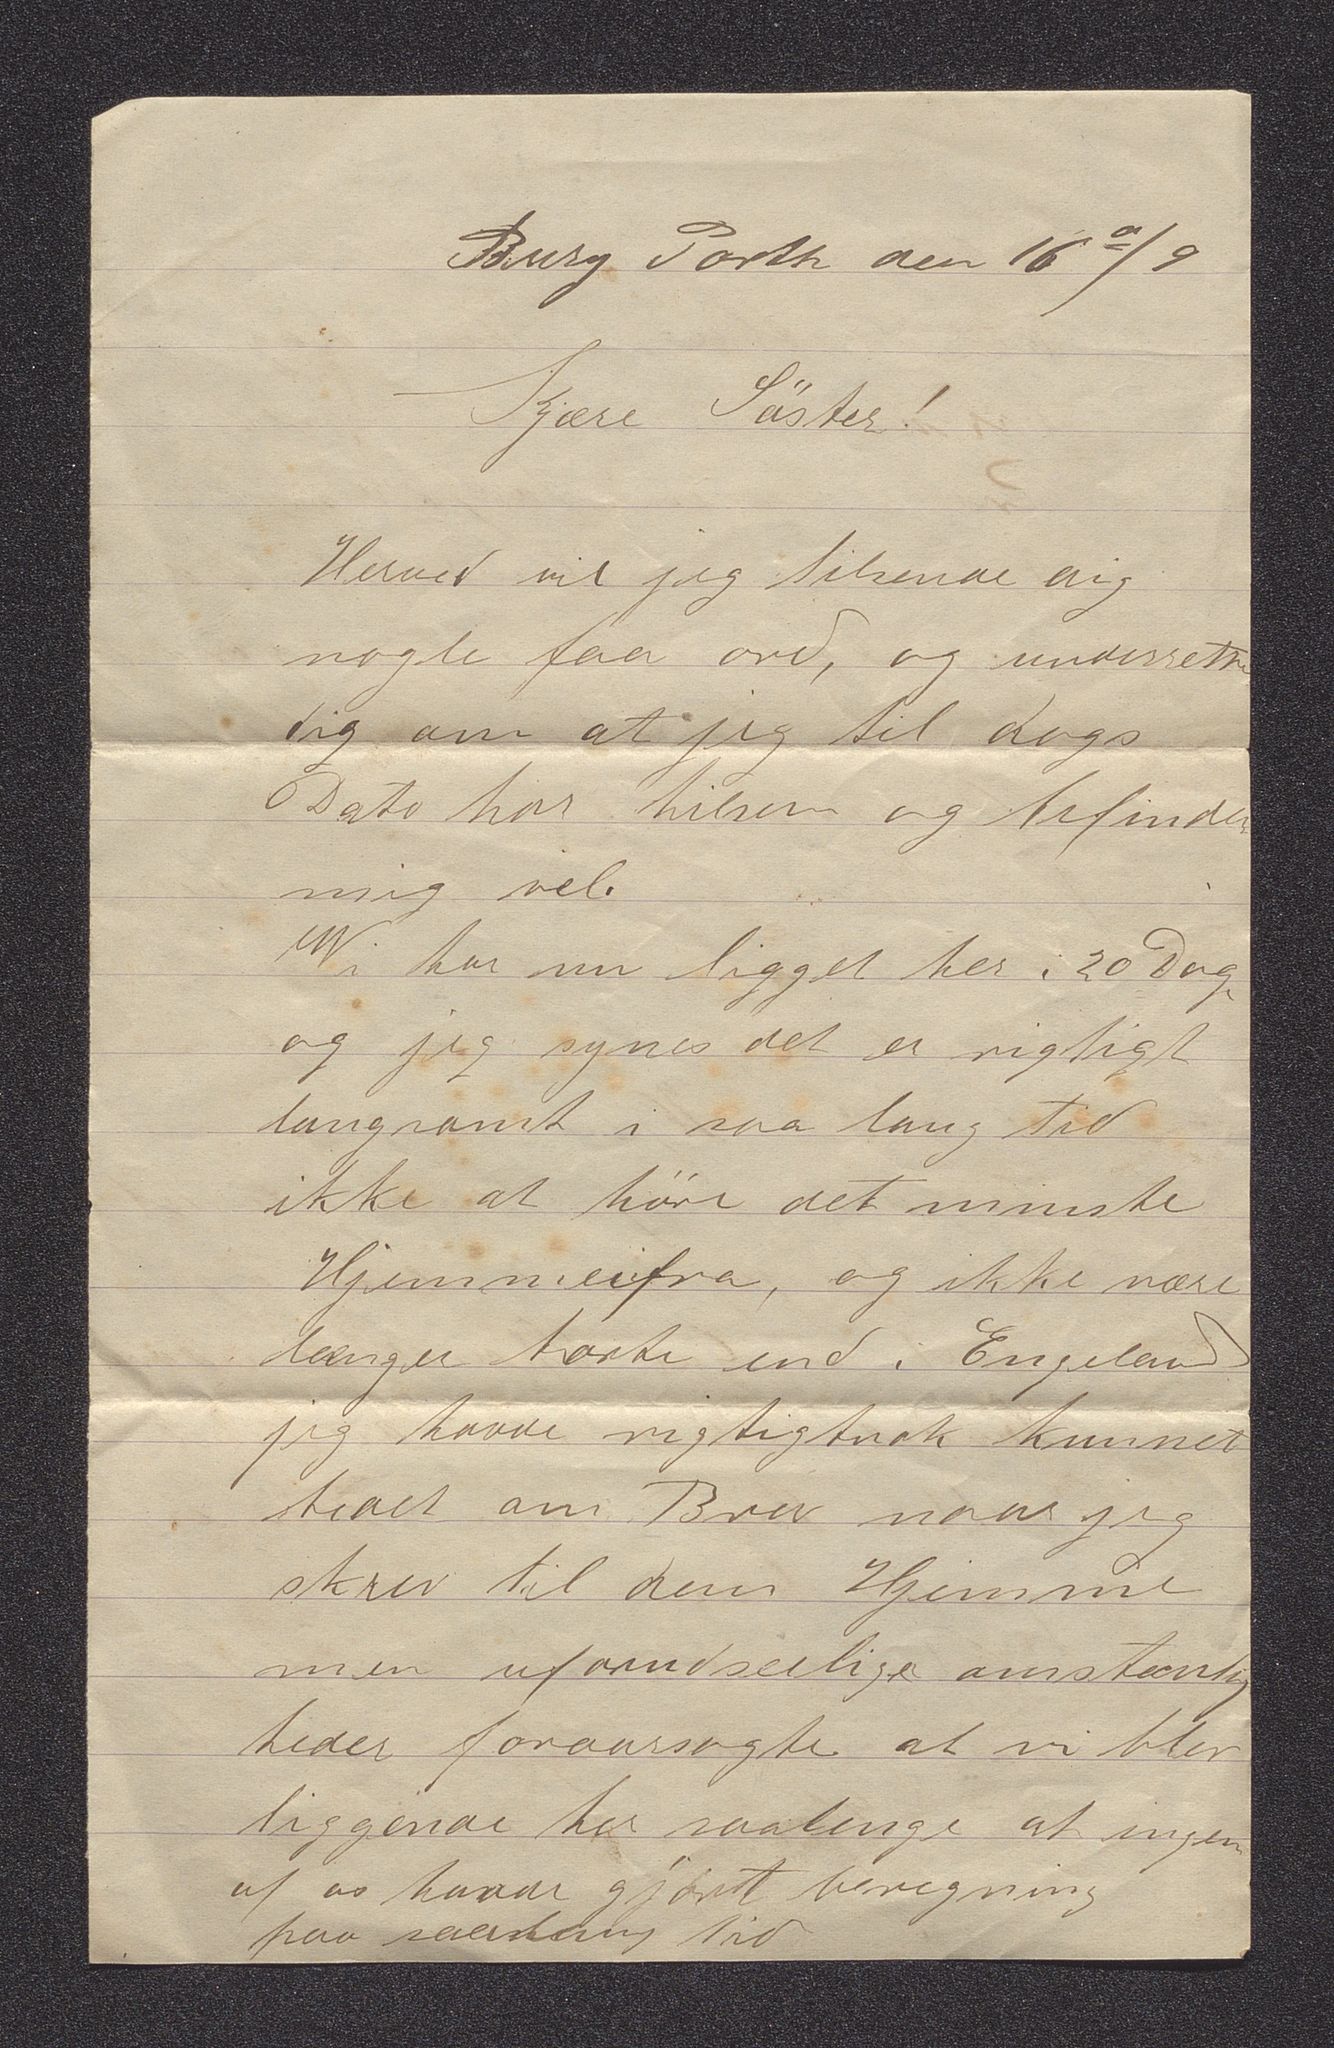 Burg Porth den 16 a/9
Kjære Söster!
Herved vil jeg tilsende dig
nogle faa ord, og underrette
dig om at jeg til dags
Dato har hilsen og befinder
mig vel.
Wi har nu ligget her i 20 Dag,
og jeg synes det er rigtigt
langsomt i saa lang tid
ikke at höre det minste
Hjemmeifra, og ikke være
længer borte end i Engeland
jeg havde rigtignok kunnet
bedet om Brev naar jeg
skrev til dem Hjemme
men uforudseelige omstændig
heder foraarsagte at vi blev
liggende her saalenge at ingen
af os havde gjört beregning
paa saalang tid